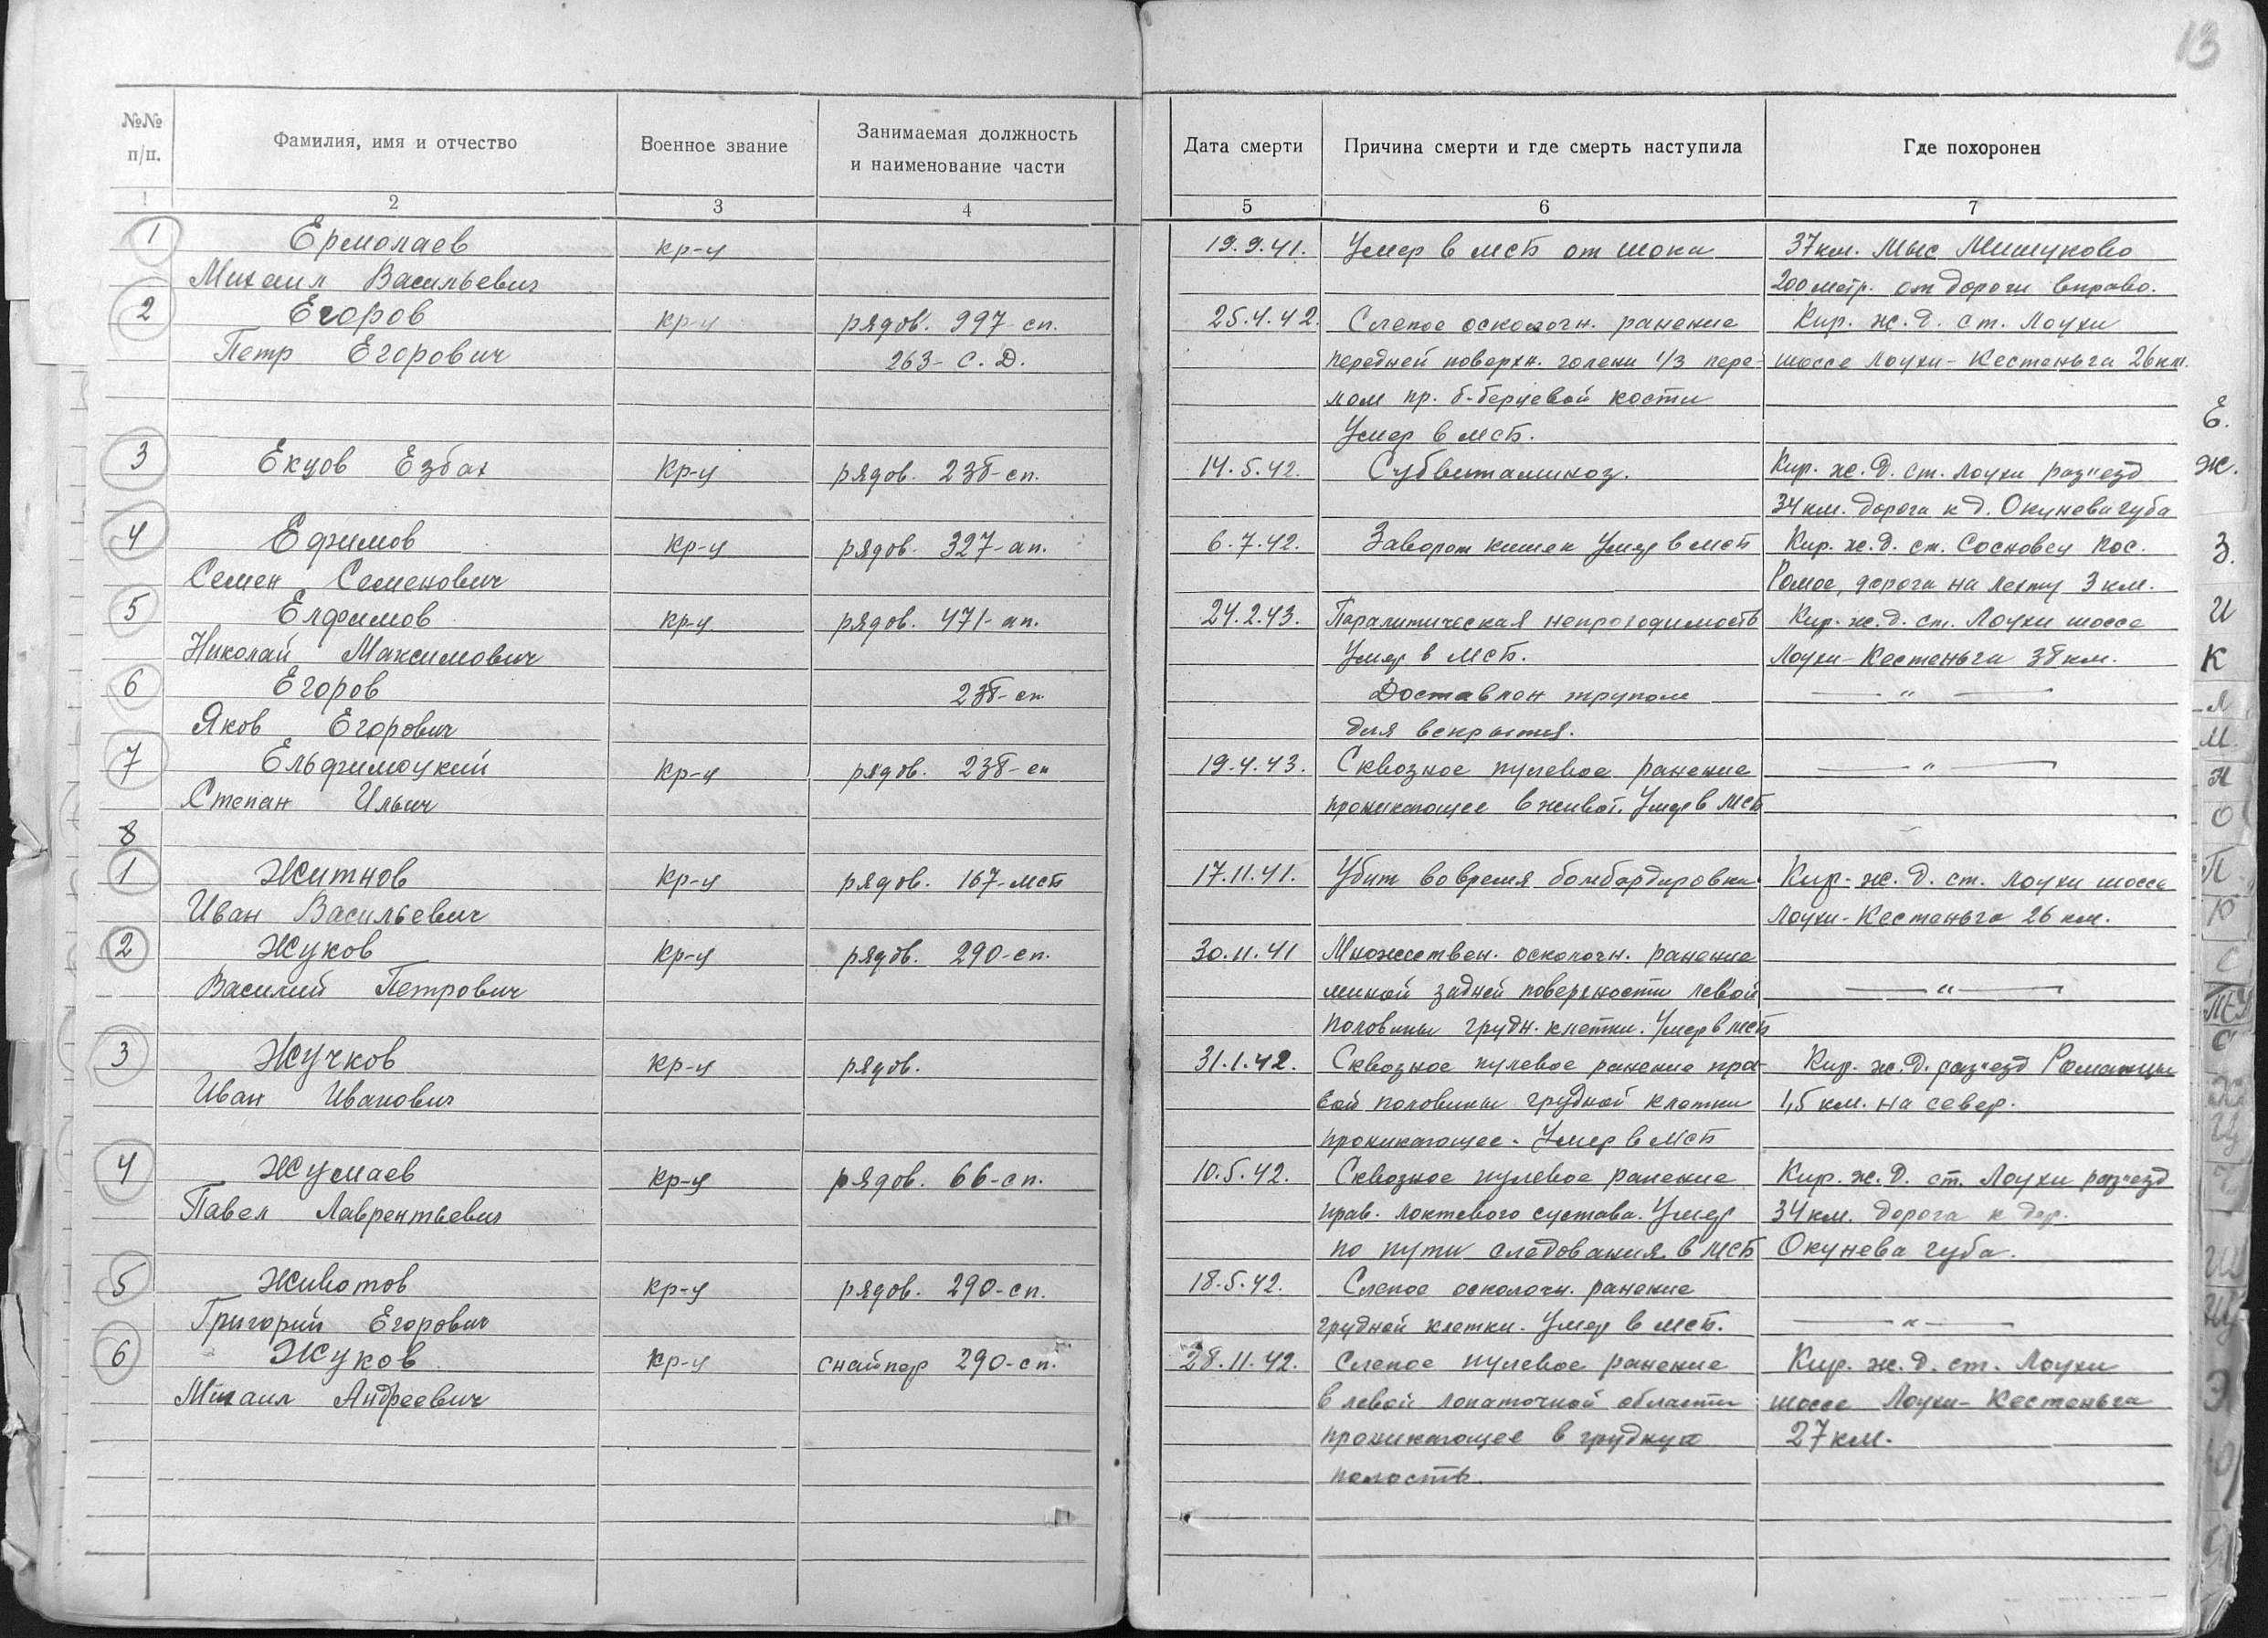 13
№№ п/п. Фамилия, имя и отчество Военное звание Занимаемая должность и наименование части Дата смерти Причина смерти и где смерть наступила Где похоронен
1 2 3 4 5 6 7
1 Ермолаев кр-ц 19.9.41. Умер в мсб от шока 37км. Мыс Мишуково
Михаил Васильевич 200 метр. от дороги вправо.
2 Егоров кр-ц рядов. 997 сп. 25.4.42. Слепое осколочн. ранение Кир. ж.д. ст. Лоухи
Петр Егорович 263- С.Д. передней поверхн. голени 1/3 пере- шоссе Лоухи-Кестеньга 26км.
лом пр. б-берцевой кости
Умер в мсб.
3 Екцов Езбах кр-ц рядов. 238-сп. 14.5.42. Субвитаминоз. Кир. ж.д. ст. Лоухи раз"езд
34км. дорога к д. Окунева губа
4 Ефимов кр-ц рядов. 327-ап. 6.7.42. Заворот кишек Умер в мсб Кир. ж.д. ст. Сосновец пос.
Семен Семенович дорога на Лехту 3км.
5 Елфимов кр-ц рядов. 471-ап. 24.2.43. Паралитическая непроходимость Кир. ж.д. ст. Лоухи шоссе
Николай Максимович Умер в мсб. Лоухи-Кестеньга 38км.
6 Егоров 238-сп. Доставлен трупом — " —
Яков Егорович для вскрытия.
7 Ельфимоцкий кр-ц рядов. 238-сп 19.4.43. Сквозное пулевое ранение — " —
Степан Ильич проникающее в живот. Умер в мсб
8
1 Житнов кр-ц рядов. 167-мсб 17.11.41. Убит во время бомбардировки Кир. ж.д. ст. Лоухи шоссе
Иван Васильевич Лоухи-Кестеньга 26км.
2 Жуков кр-ц рядов. 290-сп. 30.11.41 Множествен. осколочн. ранение
Василий Петрович миной задней поверхности левой — " —
половины грудн. клетки. Умер в мсб
3 Жучков кр-ц рядов. 31.1.42. Сквозное пулевое ранение пра- Кир. ж.д. раз"езд
Иван Иванович вой половины грудной клетки 1,5км. на север.
проникающее. Умер в мсб
4 Жумаев кр-ц рядов. 66-сп. 10.5.42. Сквозное пулевое ранение Кир. ж.д. ст. Лоухи раз"езд
Павел Лаврентьевич прав. локтевого сустава. Умер 34км. дорога к дер.
по пути следования в мсб Окунева губа.
5 Животов кр-ц рядов. 290-сп. 18.5.42. Слепое осколочн. ранение
Григорий Егорович грудной клетки. Умер в мсб. — " —
6 Жуков кр-ц снайпер 290-сп. 28.11.42. Слепое пулевое ранение Кир. ж.д. ст. Лоухи
Михаил Андреевич в левой лопаточной области шоссе Лоухи-Кестеньга
проникающее в грудную 27км.
полость.
Е.
Ж.
З.
И
К
Л
М.
Н
О
П
Р
С